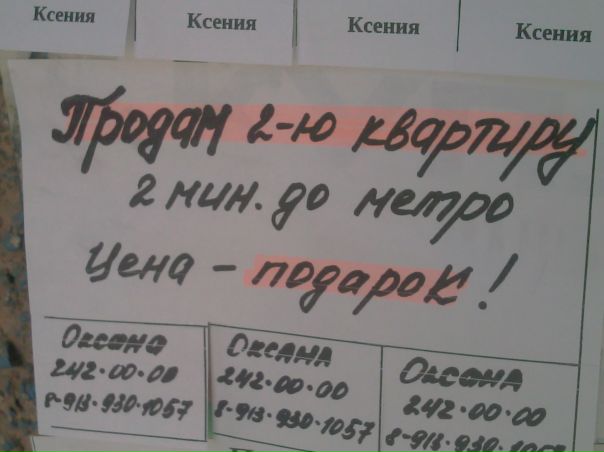 Ксения
Ксения
Ксения
Ксения
Продам 2-ю квартиру
2 мин. до метро
Цена - подарок!
Оксана
242-00-00
8-913-930-1057
Оксана
242-00-00
8-913-930-1057
Оксана
242-00-00
8-913-930-1057